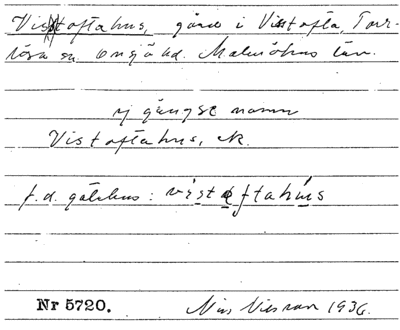 Vistoftahus, gård i Vistofta, Torr-
lösa sn. Onsjö hd. Malmöhus län.
ej gängse namn
Vistoftahus, ek.
f.d. gästhus: vistoftahus
Nr 5720. Nils Nilsson 1936.